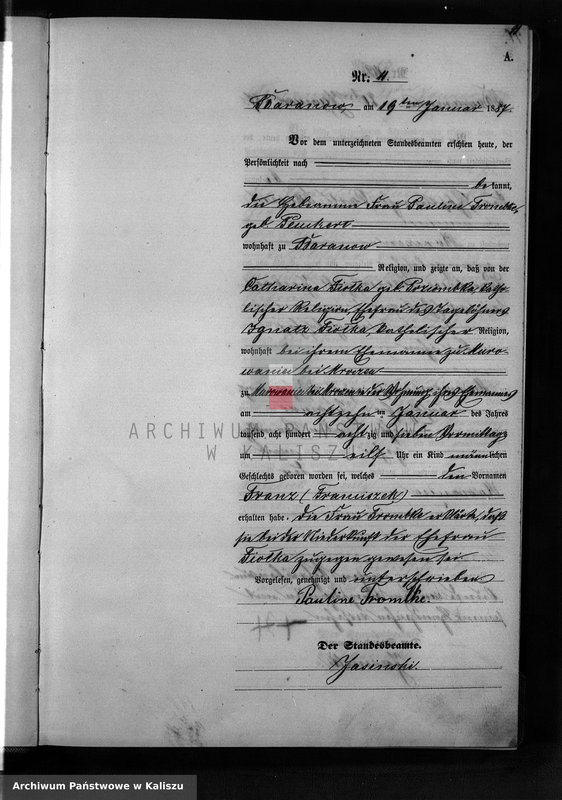 A.
Nr. 11.
Baranow am 19ten Januar 1887.
Vor dem unterzeichneten Standesbeamten erschien heute, der
Persönlichkeit nach
bekannt,
die Hebeamme Frau Pauline Tromtke,
geb. Penchert
wohnhaft zu Baranow
Religion, und zeigte an, daß von der
Catharina Fiolka geb. katho-
lischer Religion, Ehefrau des Tagelöhners
Ignatz Fiolka, katholischer Religion,
wohnhaft bei ihrem Ehemanne zu
bei
zu bei in der Wohnung ihres Ehemannes
am achtzehnten Januar des Jahres
tausend acht hundert achtzig und sieben Vormittags
um eilf Uhr ein Kind männlichen
Geschlechts geboren worden sei, welches den Vornamen
Franz (Franciszek)
erhalten habe. Die Frau Tromtke erklärte, daß
sie bei der Niederkunft der Ehefrau
Fiolka zugegen gewesen sei
Vorgelesen, genehmigt und unterschrieben
Pauline Tromtke.
Der Standesbeamte.
Jasinski.
ARCHIWUM PAŃSTWOWE
W KALISZU
Archiwum Państwowe w Kaliszu